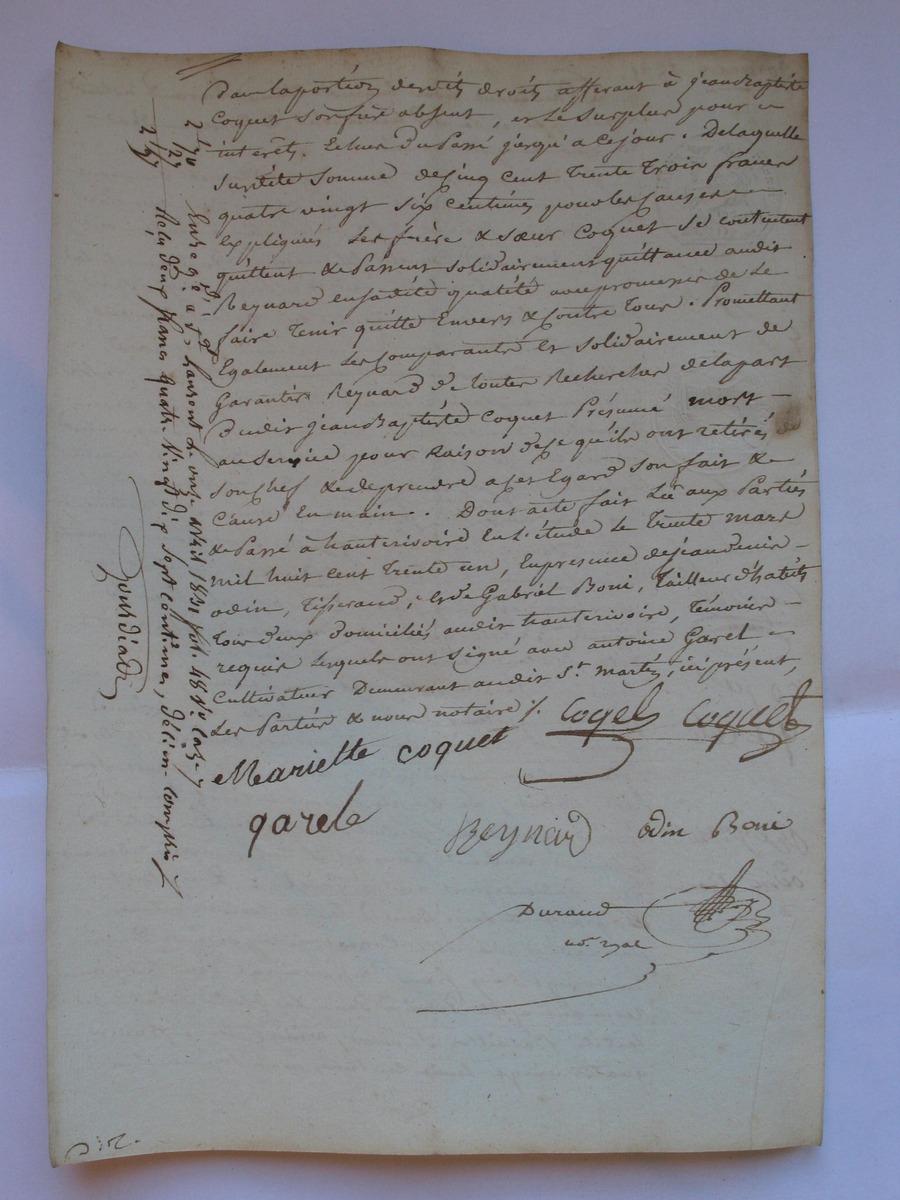 Dans la portion desdits droits afferant à jean Baptiste
Coquet son frère absent, et le surplus pour
interêts Echus du Passé jusqu'a ce jour. De laquelle
susdite somme de Cinq cent trente trois francs
quatre vingt six centimes pour les causes
Expliqués les frère & sœur Coquet se contentent
quittent & Passent solidairement quittance audit
Reynard en sadite qualité avec promesse de le
faire tenir quitte Envers & Contre tous. Promettant
Egalement les Comparants Et solidairement de
garantir Reynard de toutes Recherches de la part
dudit jean Baptiste Coquet Présumé mort
au service pour raison de ce qu'ils ont retirés de
son chef & de prendre a cet Egard son fait &
Cause En main. Dont acte fait Lu aux Parties
& Passé à hauterivoire En l'étude le trente mars
mil huit cent trente un, En presence de jean denis
odin, Tisserand, et de Gabriel Boni, Tailleur d'habits
tous deux domiciliés audit hauterivoire, témoins
requis lesquels ont signé avec antoine Garel
Cultivateur Demeurant audit St. martin, ici présent,
Les Parties & nous notaire /.
Mariette coquet Cogel Coquet
garel
Reynard odin Boni
Durand
no. royal
2/70
/27
2/97
Enregé. a St. Laurent le onze avril 1831 fol. 48 vo. Case 7
Reçu deux francs quatre vingt dix sept centimes, décime compris